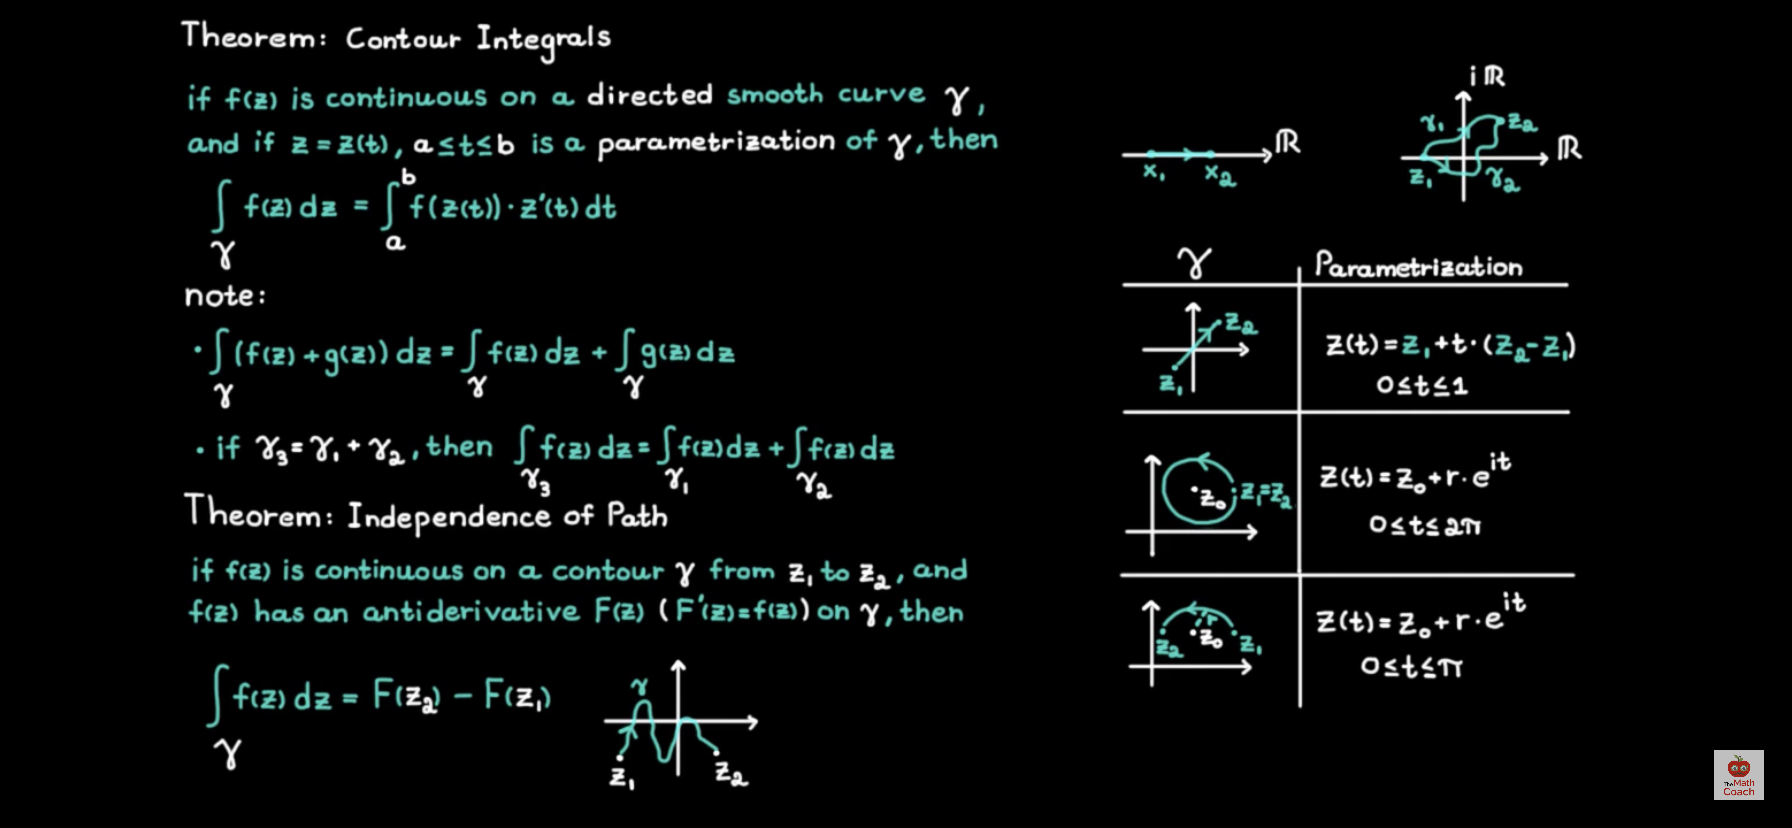 Theorem: Contour Integrals
if f(z) is continuous on a directed smooth curve γ,
and if z = z(t), a≤t≤b is a parametrization of γ, then
∫_γ f(z) dz = ∫_a^b f(z(t))·z'(t) dt
note:
· ∫_γ (f(z) + g(z)) dz = ∫_γ f(z) dz + ∫_γ g(z) dz
· if γ₃ = γ₁ + γ₂, then ∫_γ₃ f(z) dz = ∫_γ₁ f(z) dz + ∫_γ₂ f(z) dz
Theorem: Independence of Path
if f(z) is continuous on a contour γ from z₁ to z₂, and
f(z) has an antiderivative F(z) (F'(z)=f(z)) on γ, then
∫_γ f(z) dz = F(z₂) − F(z₁)
γ
z₁ z₂
x₁ x₂ ℝ
iℝ
γ₁ z₂
ℝ
z₁ γ₂
γ Parametrization
z₂
z₁
z(t) = z₁ + t·(z₂−z₁)
0≤t≤1
z₀ z₁=z₂
z(t) = z₀ + r·e^it
0≤t≤2π
r
z₂ z₀ z₁
z(t) = z₀ + r·e^it
0≤t≤π
The Math
Coach